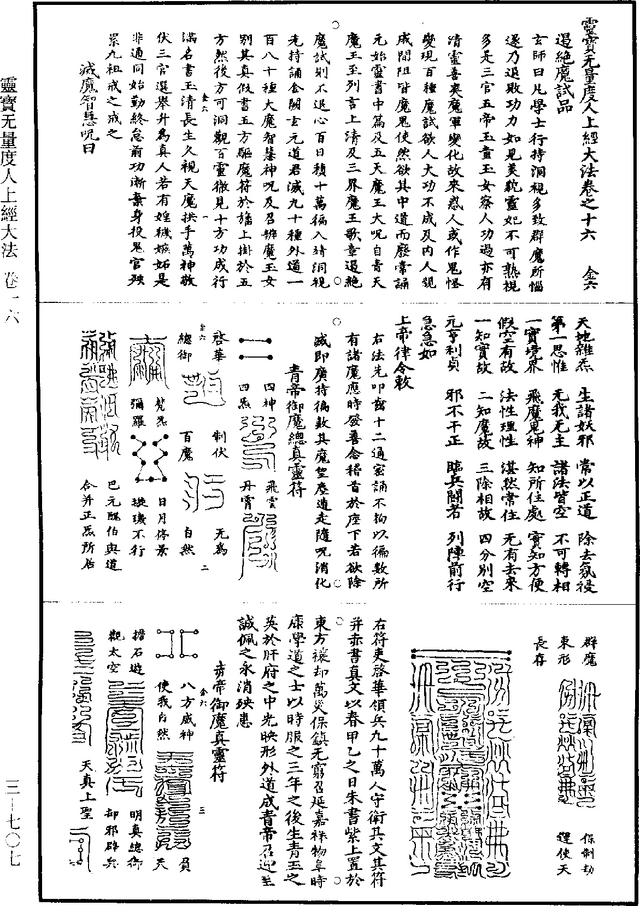 靈寶无量度人上經大法卷之十六 金六
遏絕魔試品
玄師曰凡學士行持洞視多致群魔所惱
遂乃退敗功力如見美貌靈妃不可熟視
多是三官五帝玉童玉女察人功過亦有
清靈喜爽魔軍變化故來惑人或作鬼怪
變現百種魔試欲人大功不成及內人親
戚間阻皆魔鬼使然欲其中道而廢常誦
元始靈書中篇及五天魔王大呪自青天
魔王至列言上清及三界魔王歌章遏絕
魔試則不退心百日積十萬徧入靖洞視
先持誦金闕玄元道君滅九十種外道一
百八十種大魔智慧神呪及召辨魔玉女
別其真假書五方驅魔符於牆上掛於五
方然後方可洞觀百靈徹見十方功成行
滿名書玉清長生久視天魔拱手萬神敬
伏三官選舉升為真人若有婬穢嫉妬是
非過同始勤終怠前功漸棄身投鬼官殃
累九祖戒之戒之
滅魔智慧呪曰
天地維炁 生諸妖邪 常以正道 除去氛祲
第一思惟 无我无主 諸法皆空 不可轉相
一實境界 飛魔鬼神 知所住處 實如方便
假空有故 法性理性 湛然常住 无有去來
一知實故 二知魔故 三除相故 四分別空
元亨利貞 邪不干正 臨兵鬬者 列陣前行
急急如
上帝律令敕
右法先叩齒十二通密誦不拘以徧數所
有諸魔應時發善念稽首於座下若欲除
滅即廣持徧數其魔皇塵遁走隨呪消化
青帝御魔總真靈符
四神 飛雲
四炁 丹霄
啓華 制伏 无為
總御 百魔 自然
梵炁 日月停景
彌羅 璇璣不行
巴元醜伯與道
合并正炁所居
群魔 保制劫
束形 運使天
長存
右符吏啓華領兵九十萬人守衛其文其符
并赤書真文以春甲乙之日朱書紫上置於
東方禳却萬災保鎮无窮召延嘉祥物阜時
康學道之士以時服之三年之後生青玉之
英於肝府之中光映形外道成青帝召迎至
誠佩之永消殃患
青帝御魔真靈符
八方威神 負
使我自然 天
擔石遊 明真總御
觀太空 却邪辟兵
天真上聖
靈寶无量度人上經大法 卷一六
三—七〇七